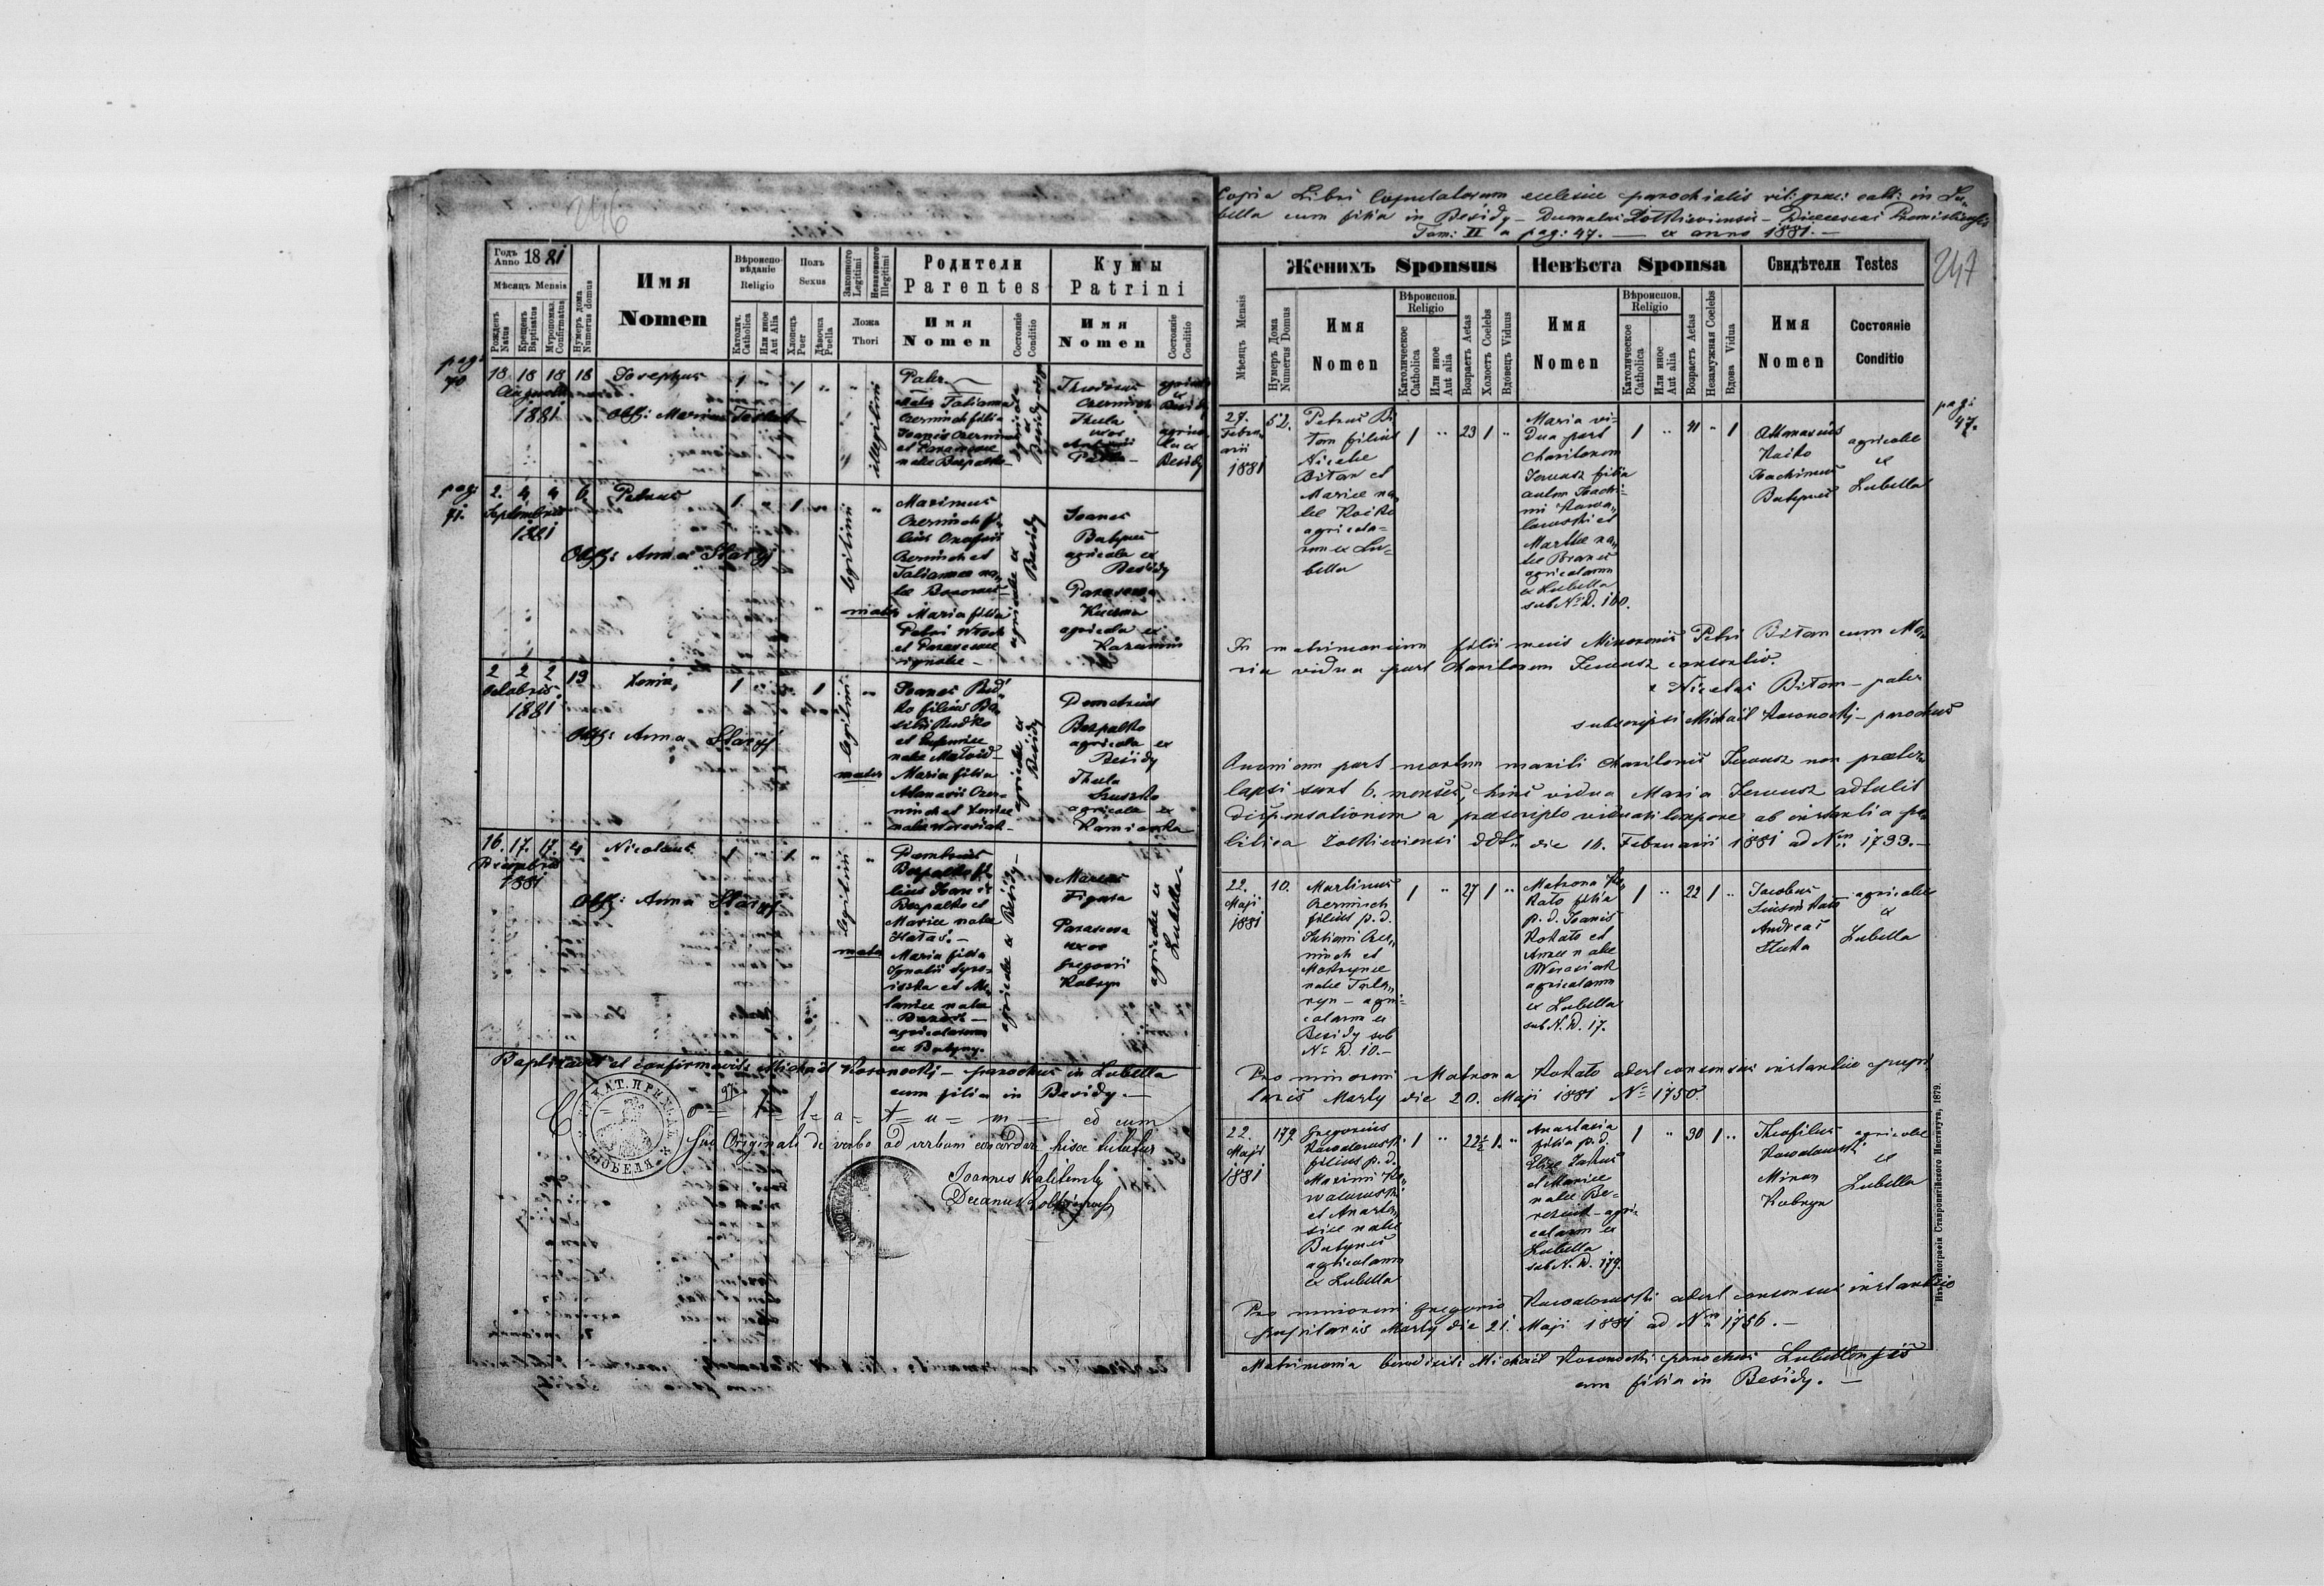 246
Годъ Anno 1881
Мѣсяцъ Mensis
Рожденъ Natus
Крещенъ Baptisatus
Мѵропомаз. Confirmatus
Нумеръ дома Numerus domus
Имя
Nomen
Вѣроиспо-
вѣданіе
Religio
Католич. Catholica
Или иное Aut Alia
Полъ
Sexus
Хлопецъ Puer
Дѣвочка Puella
Законного Legitimi
Незаконного Illegitimi
Ложа
Thori
Родители
Parentes
Имя
Nomen
Состояніе Conditio
Кумы
Patrini
Имя
Nomen
Состояніе Conditio
pag:
70
18 18 18 18
Augusti
1881
Josephus
1 " 1 "
illegitimi
Pater —
Mater Tatianna
Czerninch filia
Joanis Czerninch
et Parasceve
natae Bezpalko
agricolae
ex
Besidy
Theodorus
Czerninch
Thecla
uxor
Besidy
Obst: Marina
pag:
71.
2. 4 4 6
Septembris
1881
Petrus
1 " 1 "
legitimi
Obst: Anna Staryj
Maximus
Czerninch fi-
lius Onufrii
Czerninch et
Tatiannae na-
tae
mater Maria filia
Petri
et Parasceve
agricolae ex
Besidy
Joanes
Batyneć
agricola ex
Besidy
Parasceva
Kuzma
agricola ex
2 2 2 19
Octobris
1881
Xenia
1 " " 1
legitimi
Obst: Anna Staryj
Joanes Rud-
ko filius Ba-
silii Rudko
et Eufemiae
natae
mater Maria filia
Athanasii Czer-
ninch et Xeniae
natae Weresiuk
agricolae ex
Besidy
Demetrius
Bezpalko
agricola ex
Besidy
Thecla
agricola ex
Kamionka
16. 17. 17. 4
Decembris
1881
Nicolaus
1 " 1 "
legitimi
Obst: Anna Staryj
Demetrius
Bezpalko fi-
lius Joanis
Bezpalko et
Mariae natae
Hałas. —
mater Maria filia
Ignatii
et Me-
laniae natae
agricolarum
ex Butyny.
agricolae ex Besidy
Marcus
Figura
Parasceva
uxor
Gregorii
Kobryn
agricolae ex
Lubella.
Baptisavit et confirmavit Michaël Kosonocki — parochus in Lubella
cum filia in Besidy. —
ed cum
suo Originali de verbo ad verbum concordare hisce
Joannes
Decanus
Copia Libri Copulatorum ecclesiae parochialis rit: graec: cath: in Lu-
bella cum filia in Besidy — Decanatus Żołkieviensis — Dioeceseos Premisliensis
Tom: II a pag: 47. — ex anno 1881. —
247
Мѣсяцъ Mensis
Нумеръ Дома Numerus Domus
Женихъ Sponsus
Имя
Nomen
Вѣроиспов.
Religio
Католическое Catholica
Или иное Aut alia
Возрастъ Aetas
Холостъ Coelebs
Вдовецъ Viduus
Невѣста Sponsa
Имя
Nomen
Вѣроиспов.
Religio
Католическое Catholica
Или иное Aut alia
Возрастъ Aetas
Незамужная Coelebs
Вдова Vidua
Свидѣтели Testes
Имя
Nomen
Состояніе
Conditio
pag:
47.
27.
Febru-
arii
1881
52.
Petrus Bi-
tam filius
Nicolai
Bitam et
Mariae na-
tae Koćko
agricola-
rum ex Lu-
bella
1 " 23 1 "
Maria vi-
dua post
Charitonem
Jerusz filia
autem Joachi-
mi Kowa-
lowski et
Marthae na-
tae
agricolarum
ex Lubella
sub No D. 160.
1 " 41 " 1
Athanasius
Joachimus
Batyneć
agricolae
ex
Lubella
In matrimonium filii meis Minorenis Petri Bitam cum Ma-
ria vidua post Charitonem Jerusz consentio.
Nicolai Bitam — pater
subscripsi Michaël Kosonocki — parochus
Quoniam post mortem mariti Charitonis Jerusz non praeter-
lapsi sunt 6. menses, hinc vidua Maria Jerusz adtulit
dispensationem a praescripto viduati tempore ab instantia po-
litica Zolkieviensi ddto die 16. Februarii 1881 ad Nrm 1799. —
22.
Maji
1881
10.
Martinus
Czerninch
filius p. d.
Czer-
ninch et
Matrynae
natae
agri-
colarum ex
Besidy sub
No D. 10. —
1 " 27 1 "
Matrona Ko-
kato filia
p. d. Joanis
Kokato et
Annae natae
Weresiuk
agricolarum
ex Lubella
sub N. D. 17.
1 " 22 1 "
Jacobus
Andreas
agricolae
ex
Lubella
Pro minoreni Matrona Kokato adest consensus instantiae pupil-
laris Mosty die 20. Maji 1881 No 1750.
22.
Maji
1881
179
Gregorius
Kowalowski
filius p. d.
Maximi Ko-
walowski
et Anasta-
siae natae
Batyneć
agricolarum
ex Lubella
1 " 22½ 1. "
Anastasia
filia p. d.
Eliae
et Mariae
natae Be-
agri-
colarum ex
Lubella
sub N. D. 179.
1 " 30 1 "
Theofilus
Kowalowski
Miron
Kobryn
agricolae
ex
Lubella
Pro minoreni Gregorio Kowalowski adest consensus instantiae
pupilaris Mosty die 21. Maji 1881 ad Nrm 1756. —
Matrimonia benedixit Michaël Kosonocki parochus Lubellensis
cum filia in Besidy. —
Изъ типографіи Ставропигійского Института, 1879.